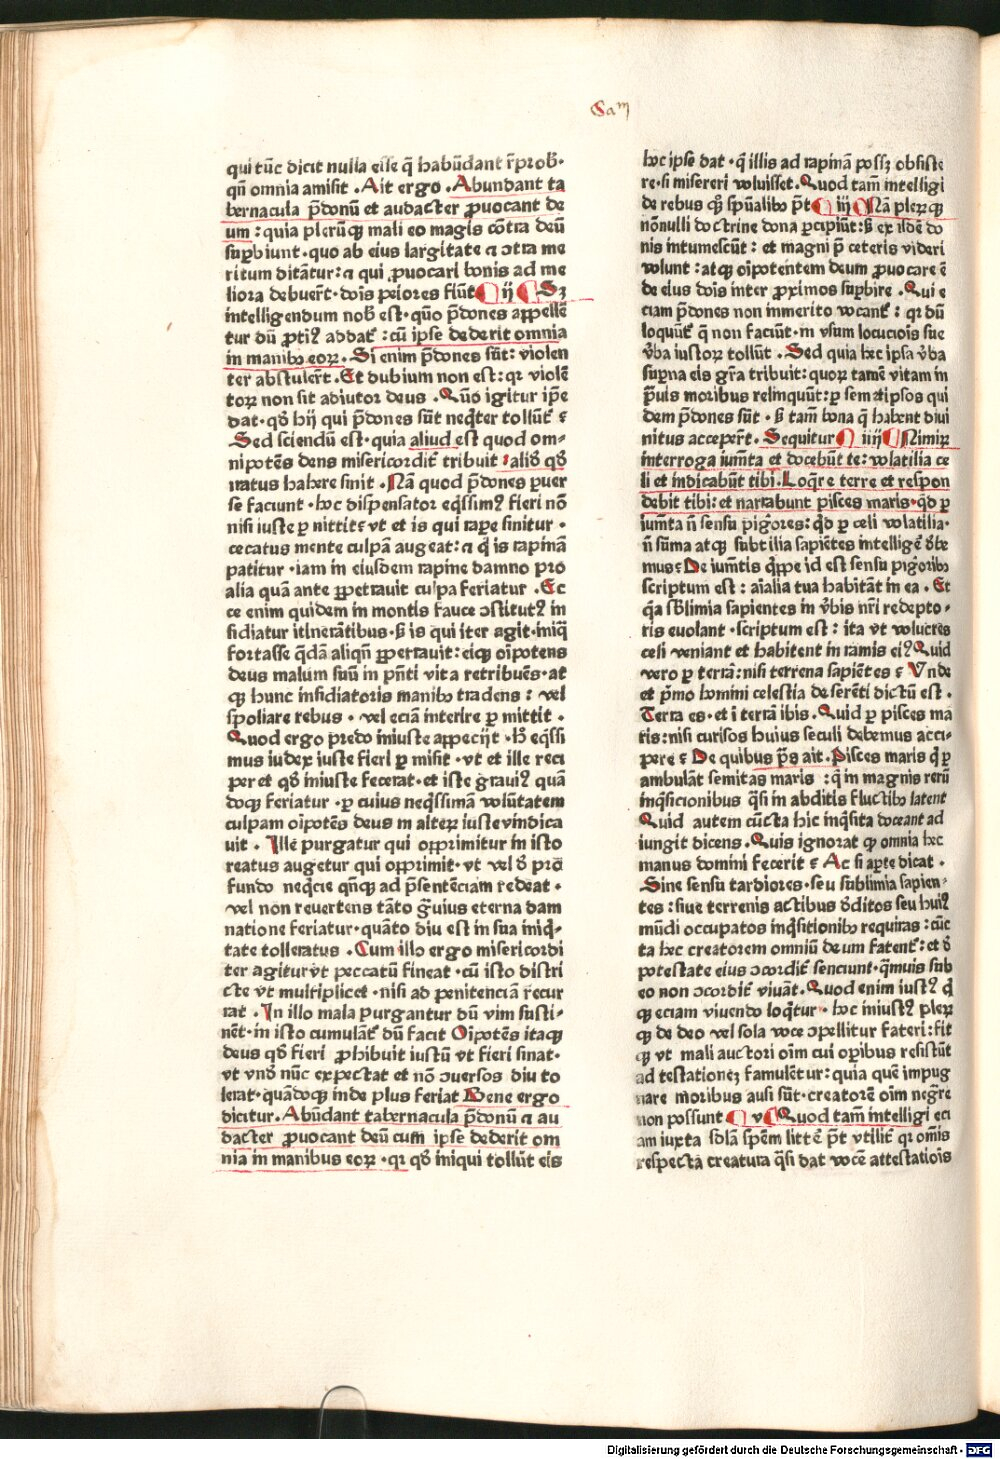 Cam
qui tūc dicit nulla esse q̄ habūdant r̄prob̄·
qn̄ omnia amisit . Ait ergo . Abundant ta
bernacula p̄donū et audacter ꝓuocant de
um : quia plerūq̨ mali eo magis cōtra deū
suꝑbiunt · quo ab eius largitate a ɔtra me
ritum ditāntur : a qui ꝓuocari bonis ad me
liora debuert̄ · dōis peiores fiūt ¶ ij ¶ Sꝫ
intelligendum nob̄ est · quō p̄dones appellē
tur dū ꝓtiꝰ addat̄ : cū ipse dederit omnia
in manibꝫ eoꝝ . Si enim p̄dones sūt : violen
ter abstulert̄ . Et dubium non est : qꝛ violē
toꝝ non sit adiutor deus . Quō igitur ip̄e
dat · qd̄ hij qui p̄dones sūt neqͥter tollūt ?
Sed sciendū est · quia aliud est quod om-
nipotēs deus misericordit̄ tribuit : aliō qd̄
iratus habere sinit . Nā quod p̄dones ꝑuer
se faciunt · hoc dispensator eq̄ssimꝰ fieri nō
nisi iuste ꝑmittit ? vt et is qui rape sinitur ·
cecatus mente culpā augeat : a q̄ is rapinā
patitur · iam in eiusdem rapine damno pro
alia quā ante ꝑpetrauit culpa feriatur . Ec
ce enim quidem in montis fauce ɔstitutꝰ in
sidiatur itinerātibus · s̄ is qui iter agit · iniq̄
fortasse q̄dā aliqn̄ ꝑpetrauit : eiq̨ oīpotens
deus malum suū in pn̄ti vita retribuēs · at
q̨ hunc insidiatoris manibꝫ tradens : vel
spoliare rebus · vel eciā interire ꝑmittit ·
Quod ergo predo iniuste appecijt · h̄ eq̄ssi
mus iudex iuste fieri ꝑmisit · vt et ille reci
peret qd̄ iniuste fecerat · et iste grauiꝰ quā
doq̨ feriatur · ꝑ cuius neq̄ssimā volūtatem
culpam oīpotēs deus in alteꝝ iuste vindica
uit . Ille purgatur qui opprimitur in isto
reatus augetur qui opprimit · vt vel d̄ pro
fundo neq̄cie qn̄q̨ ad p̄sentēciam redeat ·
vel non reuertens tāto ḡuius eterna dam
natione feriatur · quāto diu est in sua iniq̄-
tate tolleratus . Cum illo ergo misericordi
ter agitur vt peccatū fineat · cū isto distri
cte vt multiplicet · nisi ad penitenciā recur
rat . In illo mala purgantur dū vim susti-
nēt · in isto cumulāt̄ dū facit Oīpotēs itaq̨
deus qd̄ fieri ꝓhibuit iustū vt fieri sinat ·
vt vnd̄ nūc expectat et nō ɔuersos diu to
lerat · quādoq̨ inde plus feriat Bene ergo
dicitur . Abūdant tabernacula p̄donū a au
dacter ꝓuocant deū cum ipse dederit om
nia in manibus eoꝝ · qꝛ qd̄ iniqui tollūt eis
hoc ipse dat · q̄ illis ad rapinā possꝫ obsiste
re · si misereri voluisset . Quod tam̄ intelligi
de rebus qꝫ spūalibꝫ p̄t ¶ iij ¶ Nā pleꝝq̨
nōnulli doctrine dona ꝑcipiūt : s̄ ex iisdē do
nis intumescūt : et magni p̄ ceteris videri
volunt : atq̨ oīpotentem deum ꝓuocare ē
de eius dōis inter ꝓximos suꝑbire . Qui e
ciam p̄dones non immerito vocant̄ : qꝛ dū
loquūt̄ q̄ non faciūt · in vsum locucōis sue
v̄ba iustoꝝ tollūt . Sed quia hec ipsa v̄ba
suꝑna eis gr̄a tribuit : quoꝝ tamē vitam in
p̄uis moribus relinquūt : ꝑ semetipsos qui
dem p̄dones sūt · s̄ tam̄ bona q̄ habent diui
nitus accepert̄ . Sequitur ¶ iiij ¶ Nimiꝝ
interroga iumēta et docebūt te : volatilia ce
li et indicabūt tibi . Loqͤre terre et respon
debit tibi : et narrabunt pisces maris · qd̄ ꝑ
iumēta n̄ sensu pigriores : qd̄ ꝑ celi volatilia ·
n̄ sūma atq̨ subtilia sapiētes intelligē debe
mus ? De iumētis q̄ppe id est sensu pigriorib̄ꝫ
scriptum est : aīalia tua habitāt in ea . Et
q̄a sb̄limia sapientes in v̄bis nr̄i redepto-
ris euolant · scriptum est : ita vt volucres
celi veniant et habitent in ramis eiꝰ Quid
vero ꝑ terrā : nisi terrena sapiētes ? Vnde
et pͥmo homini celestia deserēti dictū est .
Terra es · et ī terrā ibis . Quid ꝑ pisces ma
ris : nisi curiosos huius seculi debemus acci-
pere ? De quibus p̄s ait . Pisces maris q̄ ꝑ
ambulāt semitas maris : q̄ in magnis rerū
inq̄sicionibus q̄si in abditis fluctibꝫ latent
Quid autem cūcta hic inq̄sita doceant ad
iungit dicens . Quis ignorat q̨ omnia hec
manus domini fecerit ? Ac si aꝑte dicat ·
Sine sensu tardiores · seu sublimia sapien-
tes : siue terrenis actibus d̄ditos seu huiꝰ
mūdi occupatos inq̄sitionibꝫ requiras : cūc
ta hec creatorem omniū deum fatent̄ : et d̄
potestate eius ɔcordit̄ senciunt · q̄muis sub
eo non ɔcordit̄ viuāt . Quod enim iustꝰ q̄
q̨ eciam viuendo loqͥtur · hoc iniustꝰ pleꝝ
q̨ de deo vel sola voce ɔpellitur fateri : fit
q̨ vt mali auctori oīm cui oꝑibus resistūt
ad testationeꝫ famulētur : quia quē impug
nare moribus ausi sūt · creatorē oīm neg̅re
non possunt ¶ v ¶ Quod tam̄ intelligi eci
am iuxta solā spēm litt̄e p̄t vtilit̄ qꝛ om̄is
respecta creatura q̄si dat vocē attestatiōis
Digitalisierung gefördert durch die Deutsche Forschungsgemeinschaft - DFG